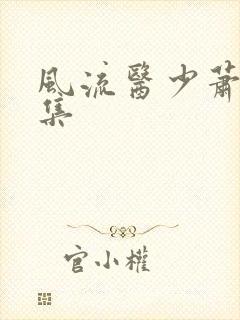 風流醫少蕭
集
官小權